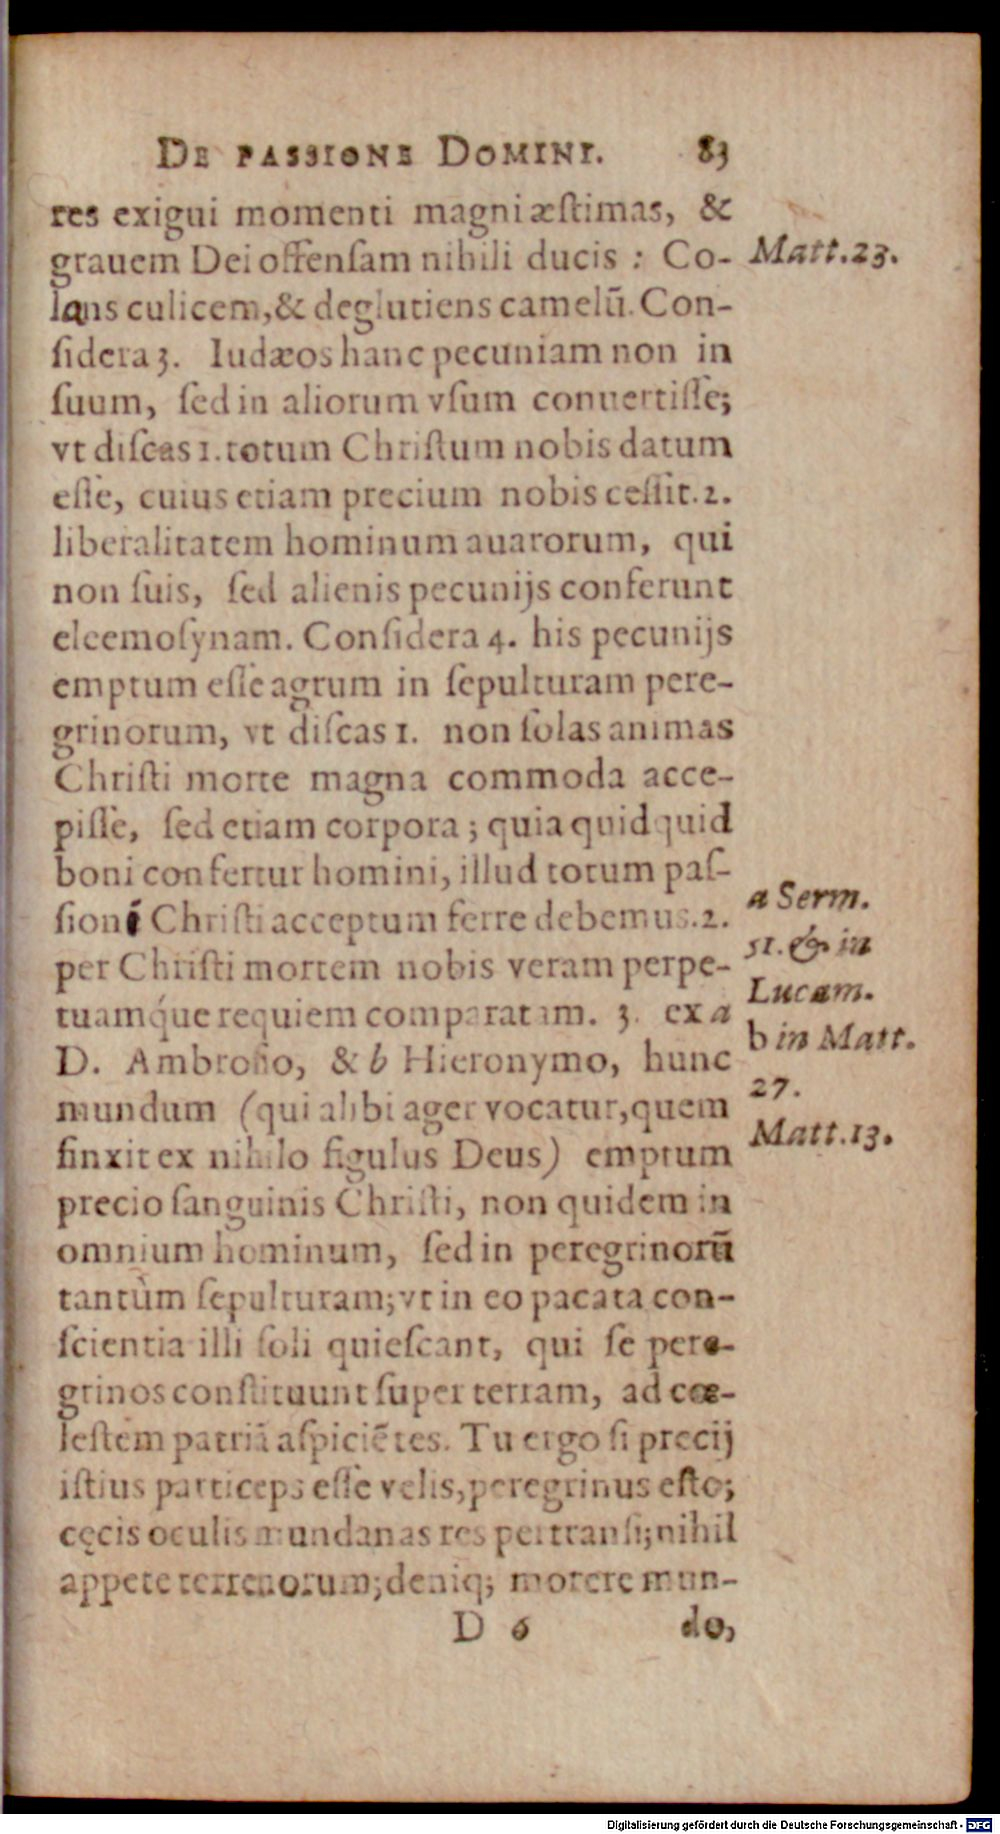 DE PASSIONE DOMINI. 83
res exigui momenti magni æstimas, &
grauem Dei offensam nihili ducis : Co-
lans culicem, & deglutiens camelū. Con-
sidera 3. Iudæos hanc pecuniam non in
suum, sed in aliorum vsum conuertisse;
vt discas 1. totum Christum nobis datum
esse, cuius etiam precium nobis cessit. 2.
liberalitatem hominum auarorum, qui
non suis, sed alienis pecunijs conferunt
eleemosynam. Considera 4. his pecunijs
emptum esse agrum in sepulturam pere-
grinorum, vt discas 1. non solas animas
Christi morte magna commoda acce-
pisse, sed etiam corpora ; quia quidquid
boni confertur homini, illud totum pas-
sioni Christi acceptum ferre debemus. 2.
per Christi mortem nobis veram perpe-
tuamq́ue requiem comparatam. 3. ex a
D. Ambrosio, & b Hieronymo, hunc
mundum (qui alibi ager vocatur, quem
finxit ex nihilo figulus Deus) emptum
precio sanguinis Christi, non quidem in
omnium hominum, sed in peregrinorū
tantùm sepulturam; vt in eo pacata con-
scientia illi soli quiescant, qui se pere-
grinos constituunt super terram, ad cœ-
lestem patriā aspiciētes. Tu ergo si precij
istius particeps esse velis, peregrinus esto;
cęcis oculis mundanas res pertransi; nihil
appete terrenorum; deniq; morere mun-
D 6 do,
Matt. 23.
a Serm.
51. & in
Lucam.
b in Matt.
27.
Matt. 13.
Digitalisierung gefördert durch die Deutsche Forschungsgemeinschaft - DFG